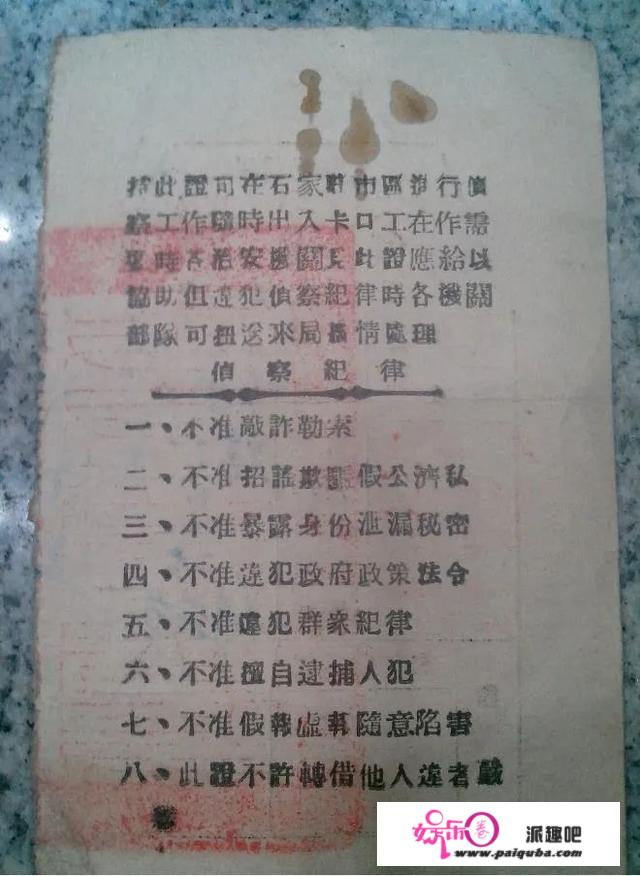 持此證可在石家莊市區進行偵
察工作隨時出入卡口工在作需
要時各治安機關見此證應給以
協助但違犯偵察紀律時各機關
部隊可扭送來局據情處理
偵察紀律
一、不准敲詐勒索
二、不准招謠欺騙假公濟私
三、不准暴露身份泄漏秘密
四、不准違犯政府政策法令
五、不准違犯群衆紀律
六、不准擅自逮捕人犯
七、不准假報虛事隨意陷害
八、此證不許轉借他人違者嚴
娱乐圈 派趣吧
www.paiquba.com